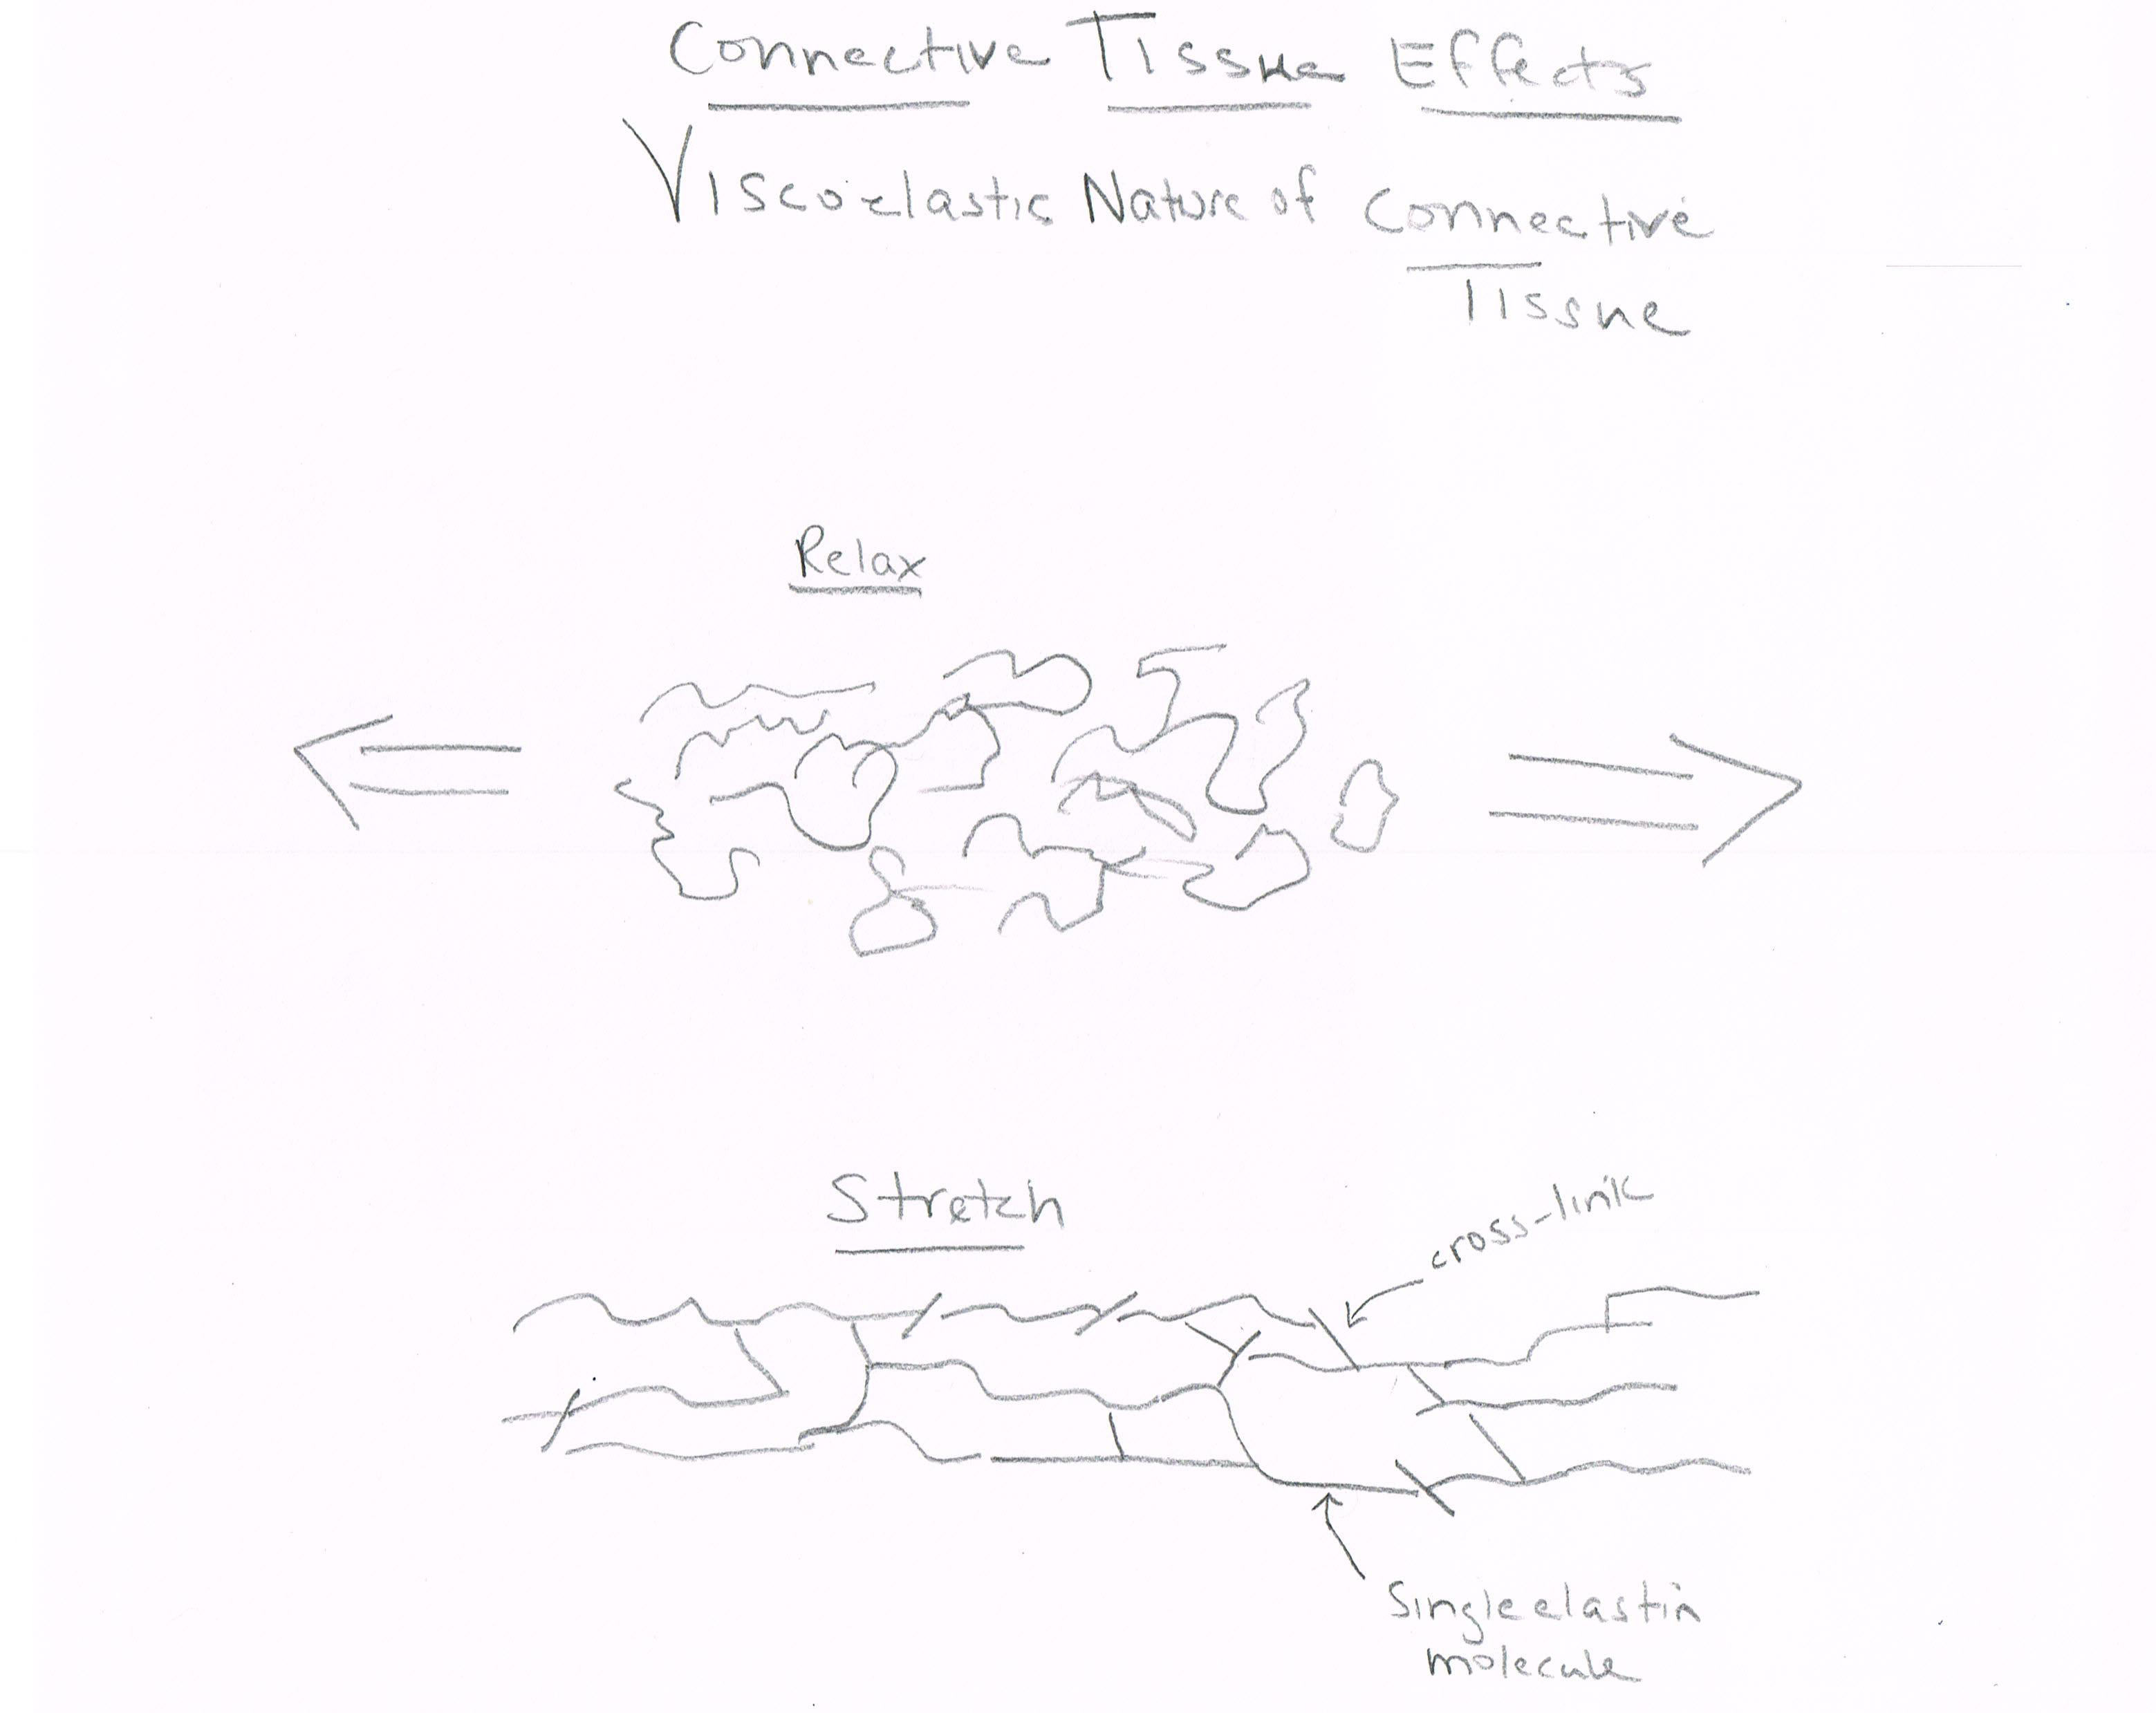 Connective Tissue Effects
Viscoelastic Nature of Connective
Tissue
Relax
Stretch
cross-link
Single elastin
molecule